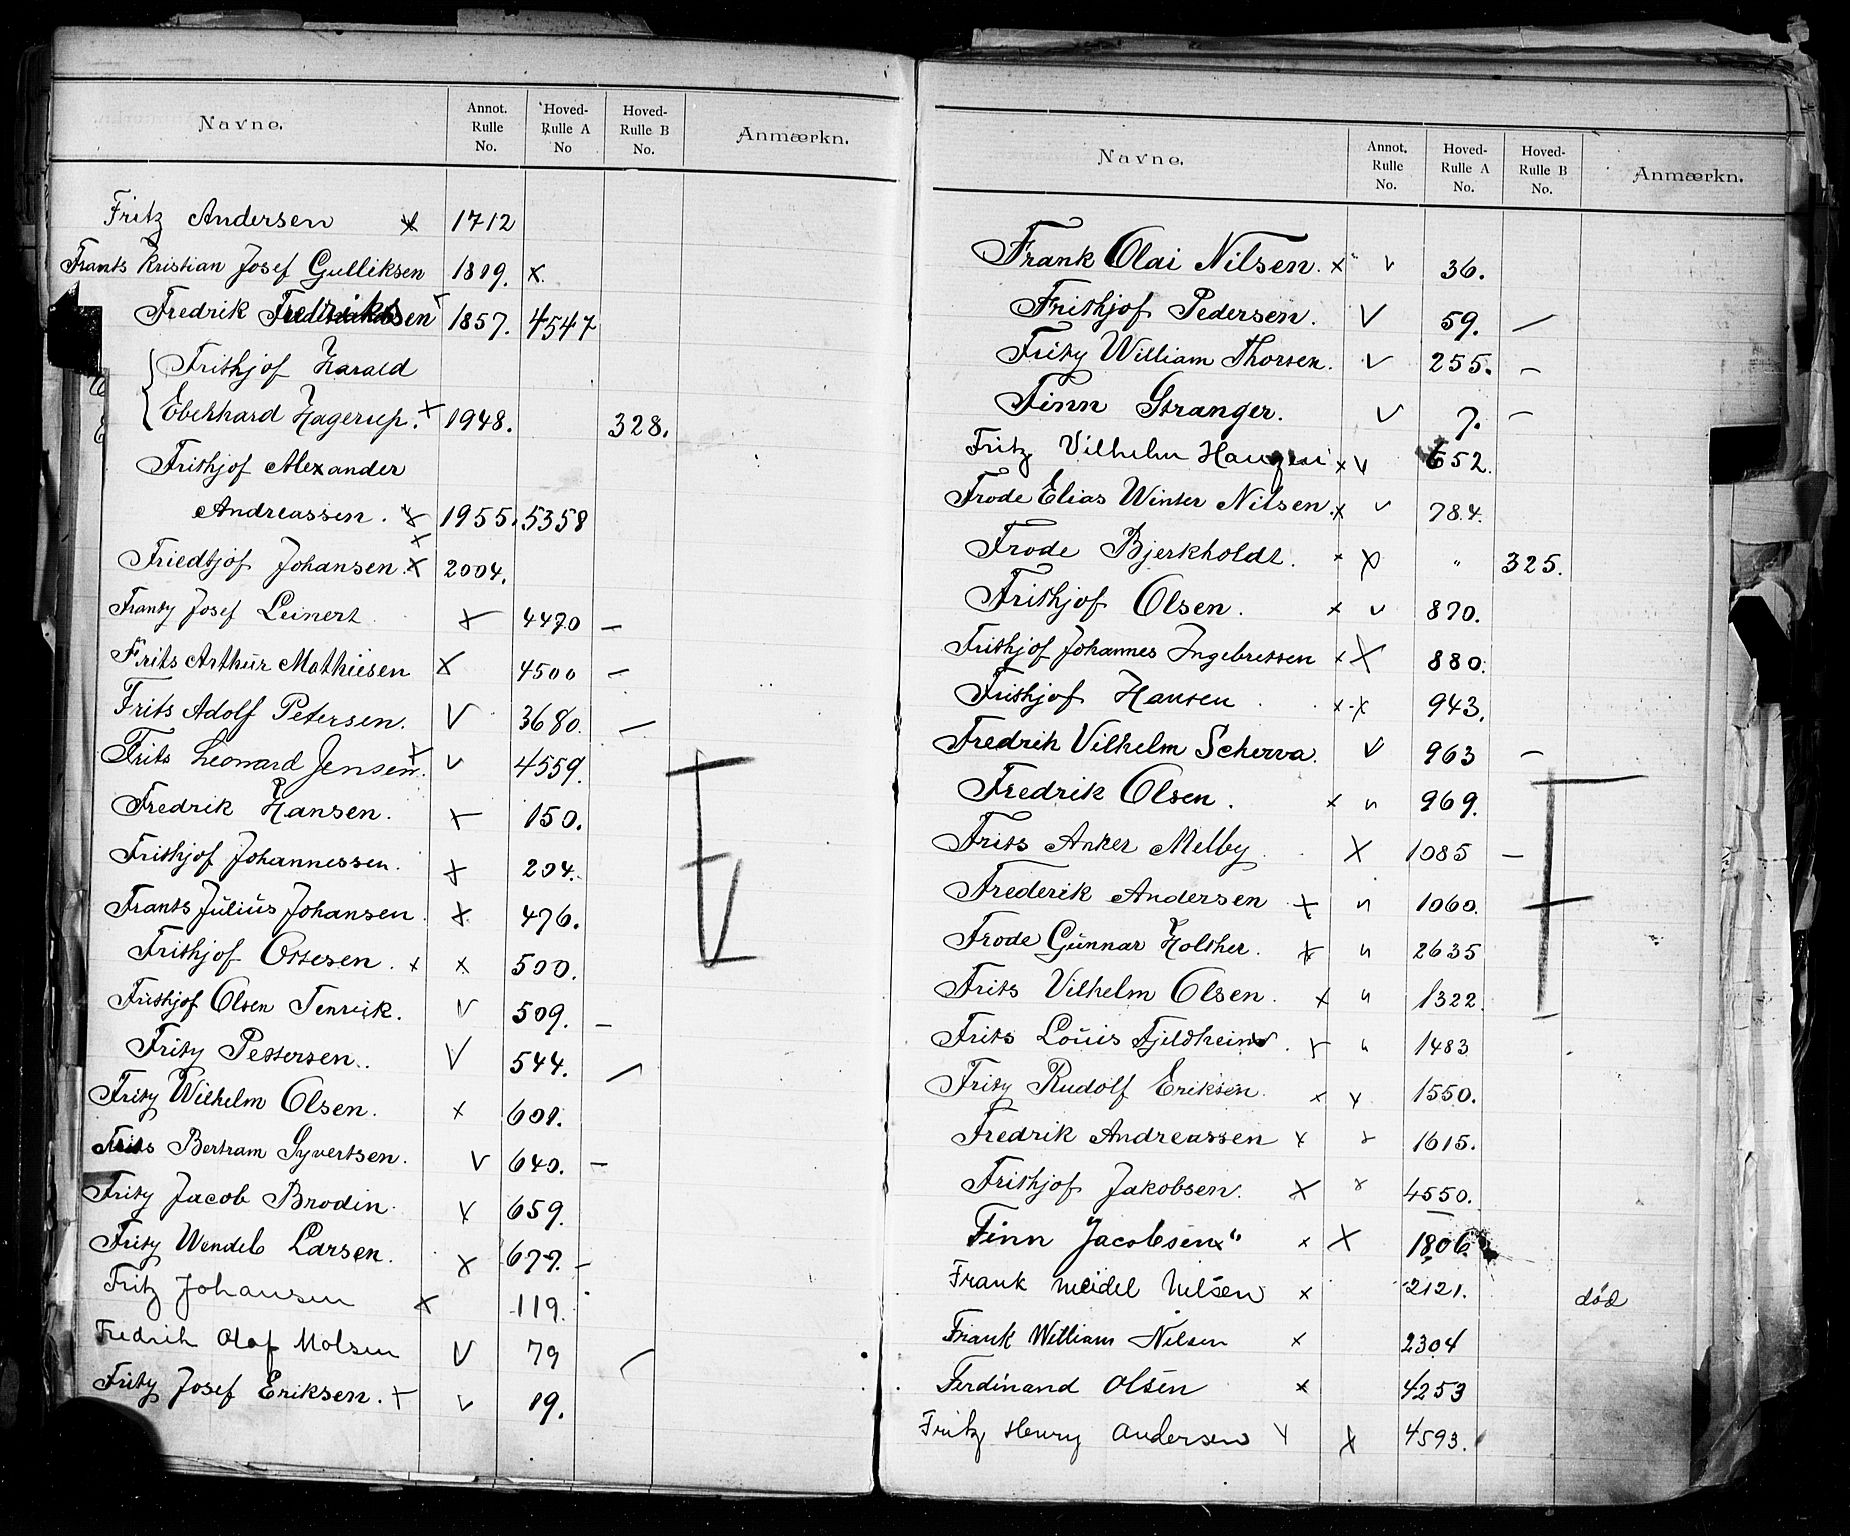 Navne. Annot. Rulle No. Hoved-Rulle A No Hoved-Rulle B No. Anmærkn.
Fritz Andersen x 1712
Frants Kristian Josef Gulliksen 1809. x.
Fredrik Fredriksen x 1857. 4547
Frithjof Harald
Eberhard Hagerup. x 1948. 328.
Frithjof Alexander
Andreassen. x 1955. 5358
Friedtjof Johansen. x 2004.
Frantz Josef Leinert x 4470 —
Frits Arthur Mathiesen x 4500 —
Frits Adolf Petersen. V 3680. —
Frits Leonard Jensen. x V 4559.
Fredrik Hansen. x 150.
Frithjof Johannessen. x 204.
Frants Julius Johansen. x 476.
Frithjof Ottesen. x x 500.
Frithjof Olsen Tenvik. V 509. —
Fritz Pettersen. V 544. —
Fritz Wilhelm Olsen. x 601.
Frits Bertram Syvertsen. V 640. —
Fritz Jacob Brodin. x 659.
Fritz Wendel Larsen. x 677. —
Fritz Johansen x 119.
Fredrik Olaf Molsen V 79 —
Fritz Josef Eriksen. x V 19.
Navne. Annot. Rulle No. Hoved-Rulle A No. Hoved-Rulle B No. Anmærkn.
Frank Olai Nilsen. x " V 36.
Frithjof Pedersen. V 59. —
Fritz William Thorsen. V 255. —
Finn Stranger. V 7. —
Fritz Vilhelm Haugen x V 652.
Frode Elias Winter Nilsen. x V 784.
Frode Bjerkholdt. x x " 325.
Frithjof Olsen. x V 870.
Frithjof Johannes Ingebretsen x X 880.
Frithjof Hansen x x 943.
Fredrik Vilhelm Scherva. V 963 —
Fredrik Olsen. x " 969.
Frits Anker Melby. X 1085 —
Frederik Andersen x " 1060.
Frode Gunnar Holther. x " 2635
Frits Vilhelm Olsen. x " 1322.
Frits Louis Fjeldheim. x " 1483
Fritz Rudolf Eriksen. x x 1550.
Fredrik Andreassen x " 1615.
Frithjof Jakobsen. X " 4550.
Finn Jacobsen x" x X 1806.
Frank Meidel Nilsen x 2121. død
Frank William Nilsen x 2304
Ferdinand Olsen x 4253
Fritz Henry Andersen V x 4593.